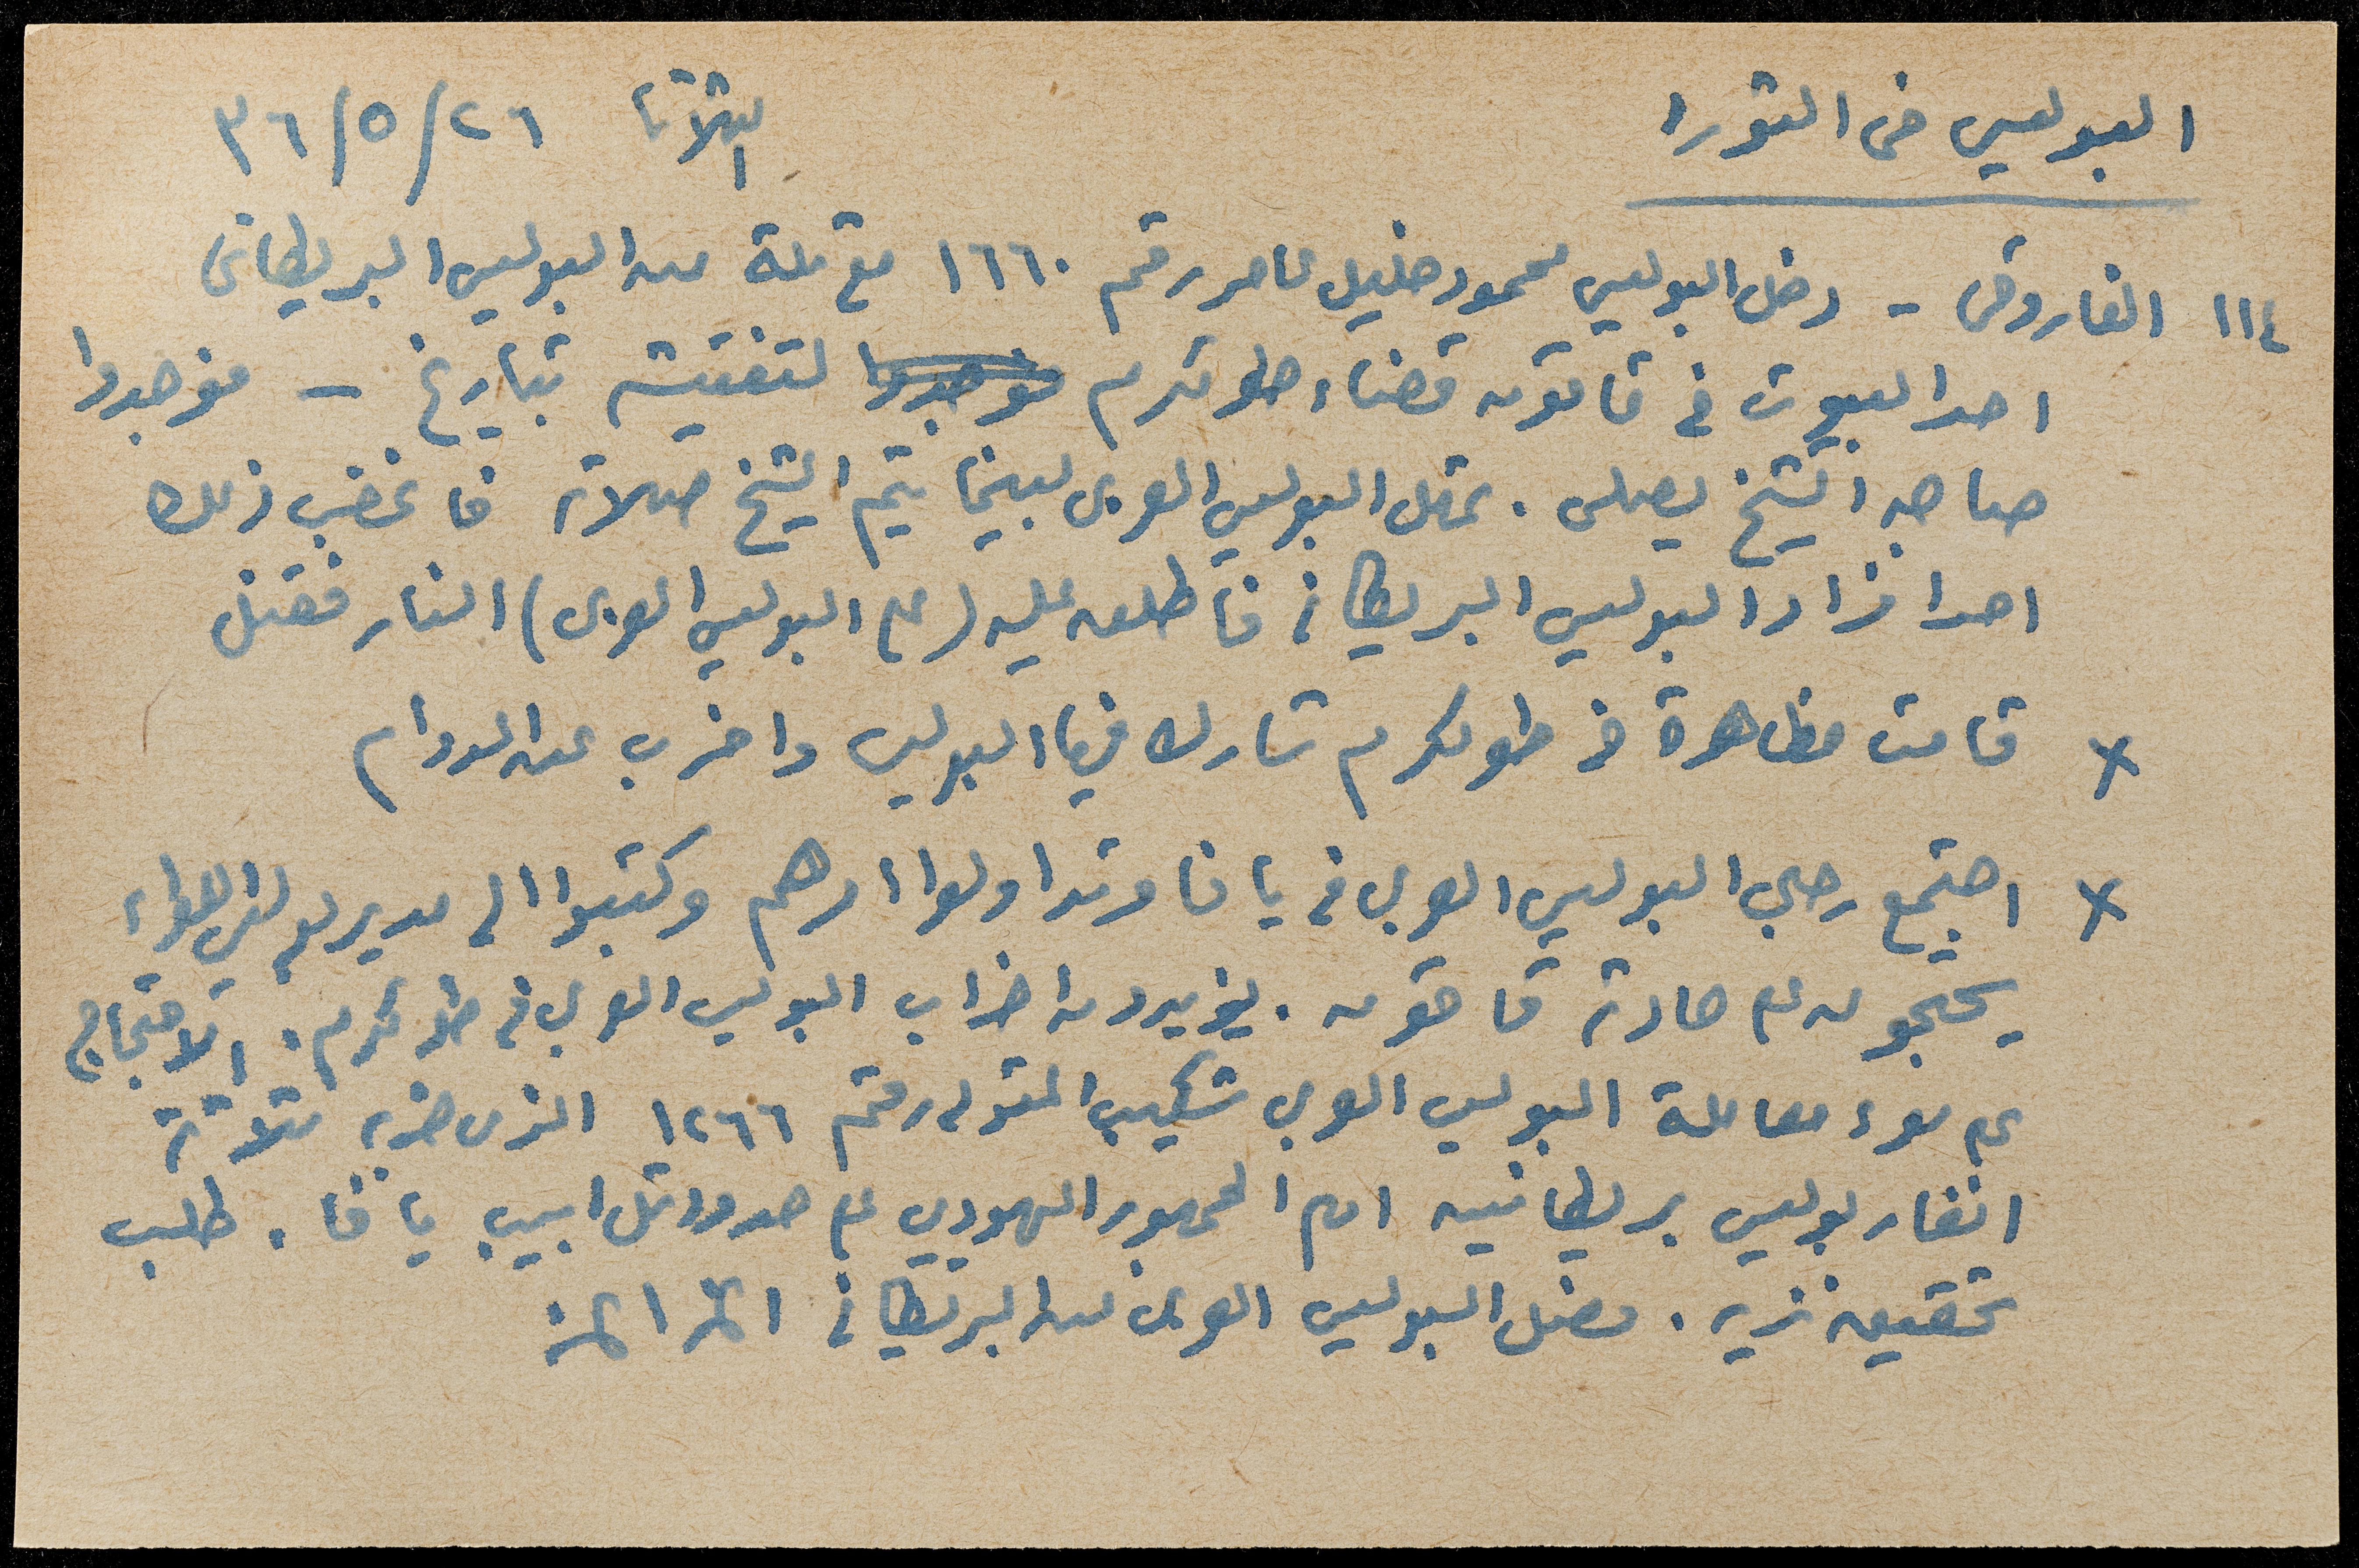 البوليس في الثورا
الثلاثا ٢٦/٥/٣٦
١١٤ الفاروقى - دخل البوليس محمود خليل عامر رقم ١٦٦٠ مع ثلة من البوليس البريطانى
احد البيوت في قاقون قضاء طولكرم فوجدوا لتفتيشه بتاريخ - فوجدوا
صاحبه الشيخ يصلى . تمهل البوليس العربى لبينما يتم الشيخ صلاته فاغضب ذلك
احد افراد البوليس البريطاني فاطلق عليه (على البوليس العربى) النار فقتل
x قامت مظاهرة في طولكرم شارك فيها البوليس واضرب عن الدوام
x اجتمع رجال البوليس العربي في يافا وتداولوا امرهم وكتبوا الى مدير بوليس اللواء
يحتجون على حادثة قاقون . يؤيدون اضراب البوليس العربي في طولكرم . الاحتجاج
على سوء معاملة البوليس العربي شكيب رقم ١٢٦٦ الذى ضربه ثلاثة
انفار بوليس بريطانيين امام الجمهور اليهودي على حدود تل ابيب يافا . طلب
تحقيق نزيه . فصل البوليس العربى عن البريطاني الخ الخ